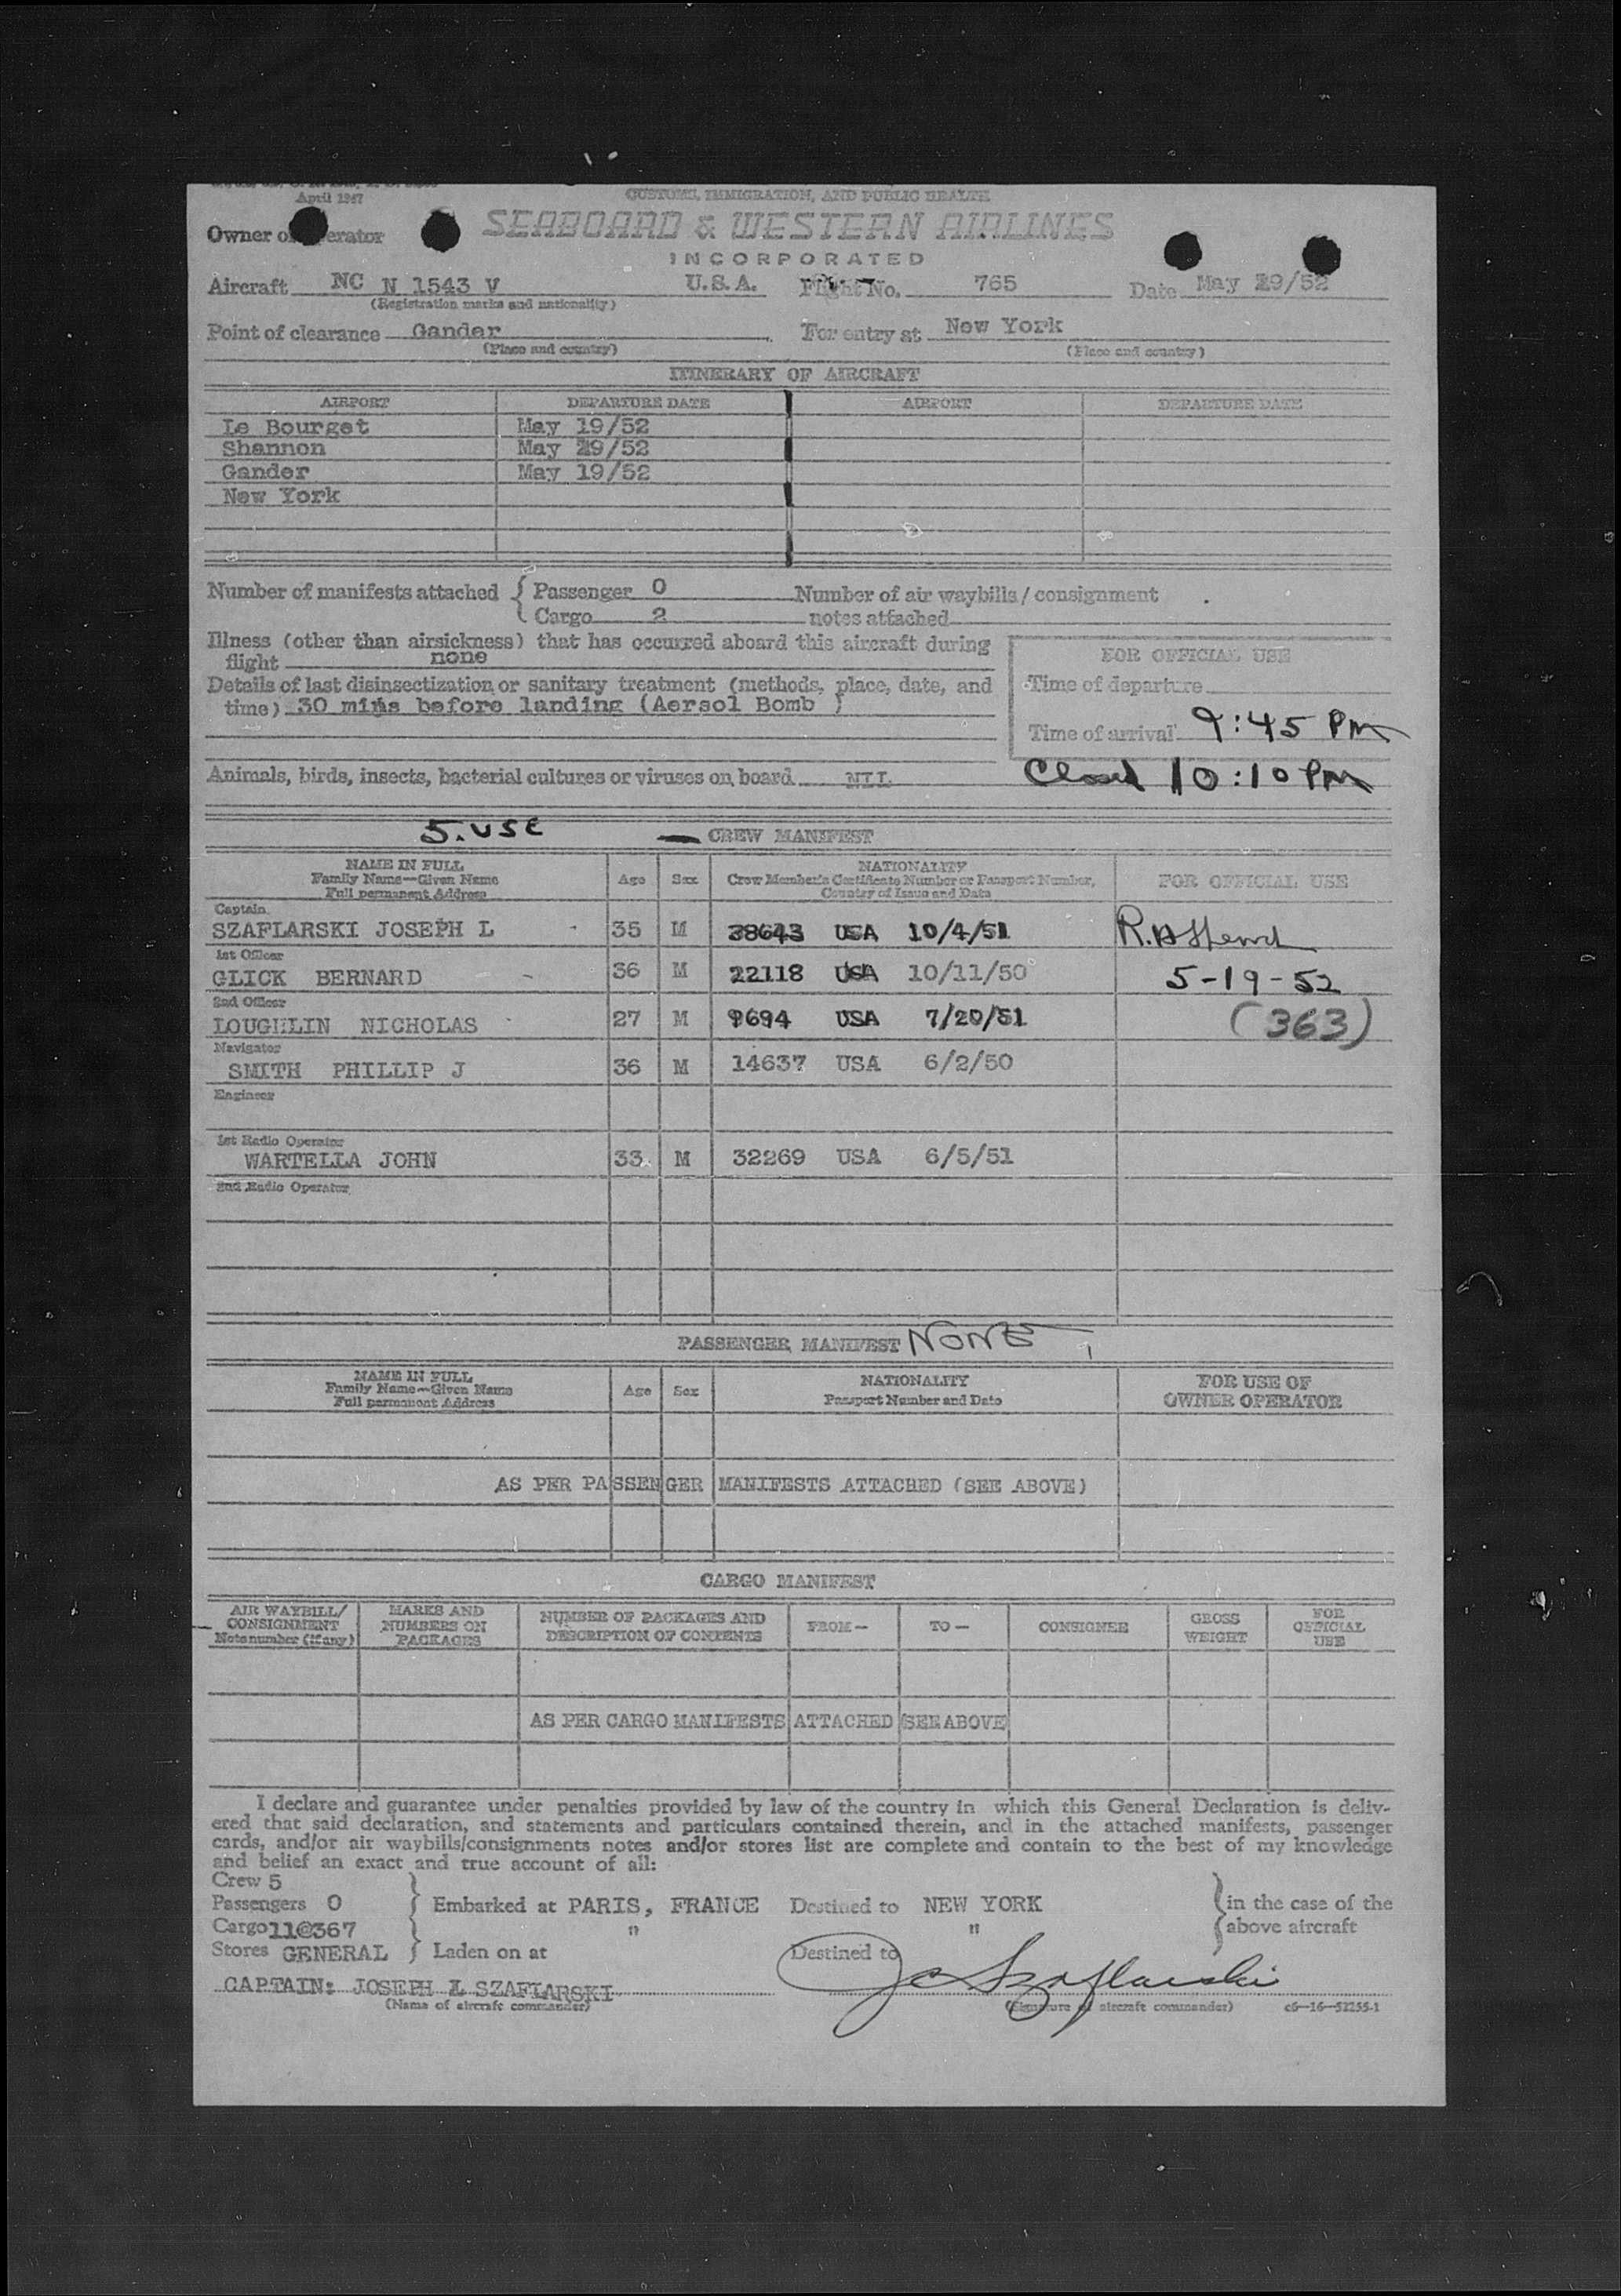 April 1947
CUSTOMS, IMMIGRATION, AND PUBLIC HEALTH
Owner or Operator SEABOARD & WESTERN AIRLINES
INCORPORATED
Aircraft NC N 1543 V U.S.A. Flight No. 765 Date May 19/52
(Registration marks and nationality)
Point of clearance Gander For entry at New York
(Place and country) (Place and country)
ITINERARY OF AIRCRAFT
AIRPORT DEPARTURE DATE AIRPORT DEPARTURE DATE
Le Bourget May 19/52
Shannon May 19/52
Gander May 19/52
New York
Number of manifests attached { Passenger 0 Number of air waybills/consignment
Cargo 2 notes attached
Illness (other than airsickness) that has occurred aboard this aircraft during
flight none
FOR OFFICIAL USE
Details of last disinsectization or sanitary treatment (methods, place, date, and
time) 30 mins before landing (Aersol Bomb )
Time of departure
Time of arrival 9:45 PM
Animals, birds, insects, bacterial cultures or viruses on board NIL
Closed 10:10 PM
5. USC CREW MANIFEST
NAME IN FULL
Family Name—Given Name
Full permanent Address
Age Sex
NATIONALITY
Crew Member's Certificate Number or Passport Number,
Country of Issue and Date
FOR OFFICIAL USE
Captain
SZAFLARSKI JOSEPH L 35 M 38643 USA 10/4/51
1st Officer
GLICK BERNARD 36 M 22118 USA 10/11/50 5-19-52
2nd Officer
LOUGHLIN NICHOLAS 27 M 9694 USA 7/20/51 (363)
Navigator
SMITH PHILLIP J 36 M 14637 USA 6/2/50
Engineer
1st Radio Operator
WARTELLA JOHN 33 M 32269 USA 6/5/51
2nd Radio Operator
PASSENGER MANIFEST NONE
NAME IN FULL
Family Name—Given Name
Full permanent Address
Age Sex
NATIONALITY
Passport Number and Date
FOR USE OF
OWNER OPERATOR
AS PER PASSENGER MANIFESTS ATTACHED (SEE ABOVE)
CARGO MANIFEST
AIR WAYBILL/
CONSIGNMENT
Note number (if any)
MARKS AND
NUMBERS ON
PACKAGES
NUMBER OF PACKAGES AND
DESCRIPTION OF CONTENTS
FROM— TO— CONSIGNEE
GROSS
WEIGHT
FOR
OFFICIAL
USE
AS PER CARGO MANIFESTS ATTACHED (SEE ABOVE
I declare and guarantee under penalties provided by law of the country in which this General Declaration is deliv-
ered that said declaration, and statements and particulars contained therein, and in the attached manifests, passenger
cards, and/or air waybills/consignments notes and/or stores list are complete and contain to the best of my knowledge
and belief an exact and true account of all:
Crew 5
Passengers 0 } Embarked at PARIS, FRANCE Destined to NEW YORK } in the case of the
Cargo 11@367 " " above aircraft
Stores GENERAL } Laden on at Destined to
CAPTAIN: JOSEPH L SZAFLARSKI J C Szaflarski
(Name of aircraft commander) (Signature of aircraft commander) c6—16—52255-1